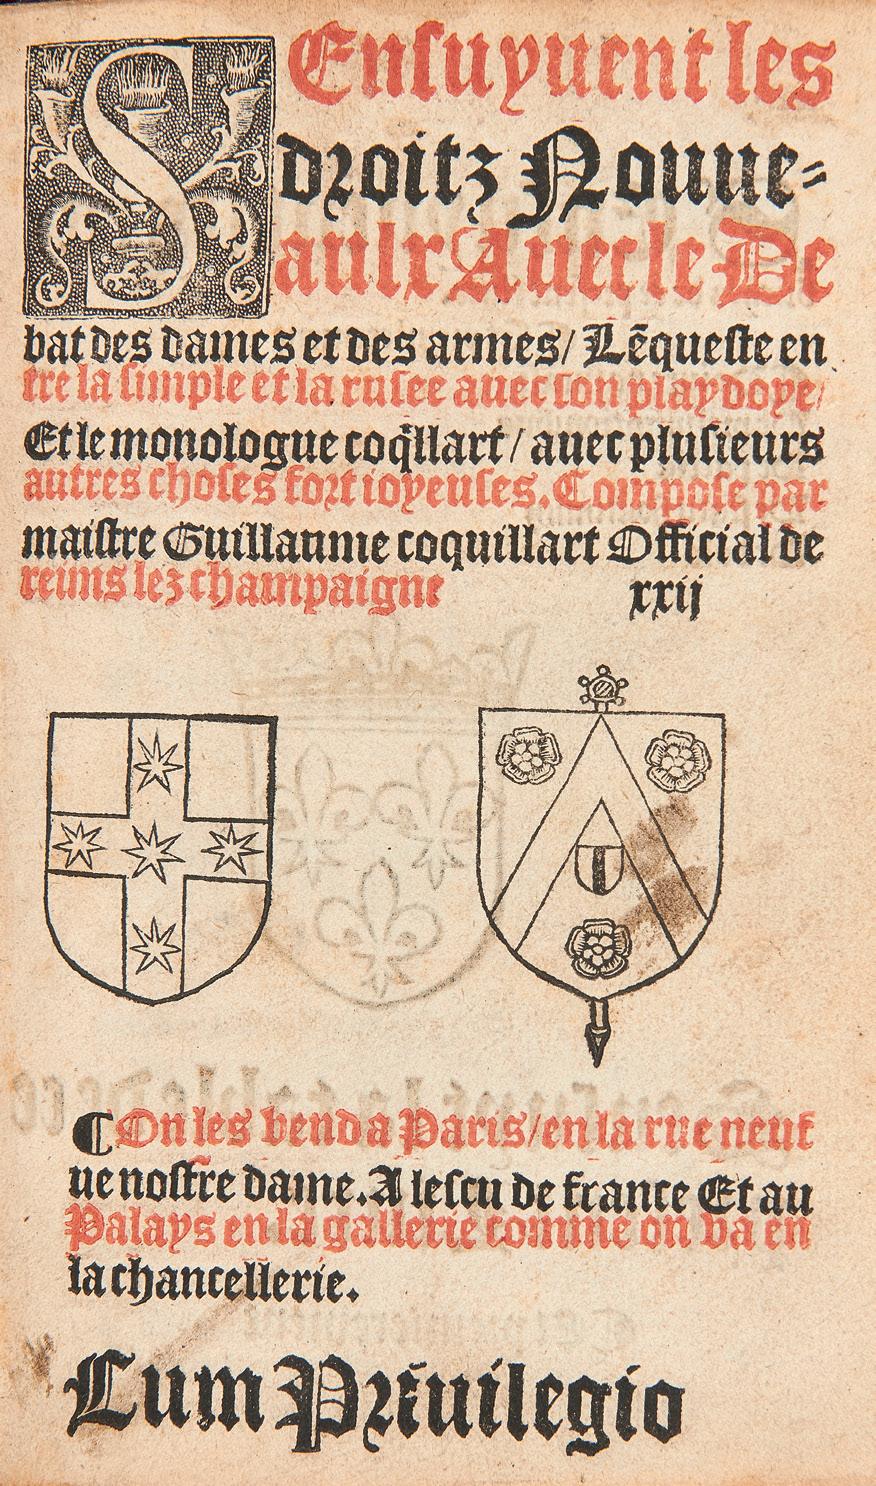 SEnsuyuent les
droitz Nouue-
aulx Auec le De
bat des dames et des armes/ Lēqueste en
tre la simple et la rusee auec son playdoye/
Et le monologue coq̃llart/ auec plusieurs
autres choses fort ioyeuses. Compose par
maistre Guillaume coquillart Official de
reims lez champaigne xxij
¶ On les vend a Paris/ en la rue neuf
ue nostre dame. A lescu de france Et au
Palays en la gallerie comme on va en
la chancellerie.
Cum Priuilegio